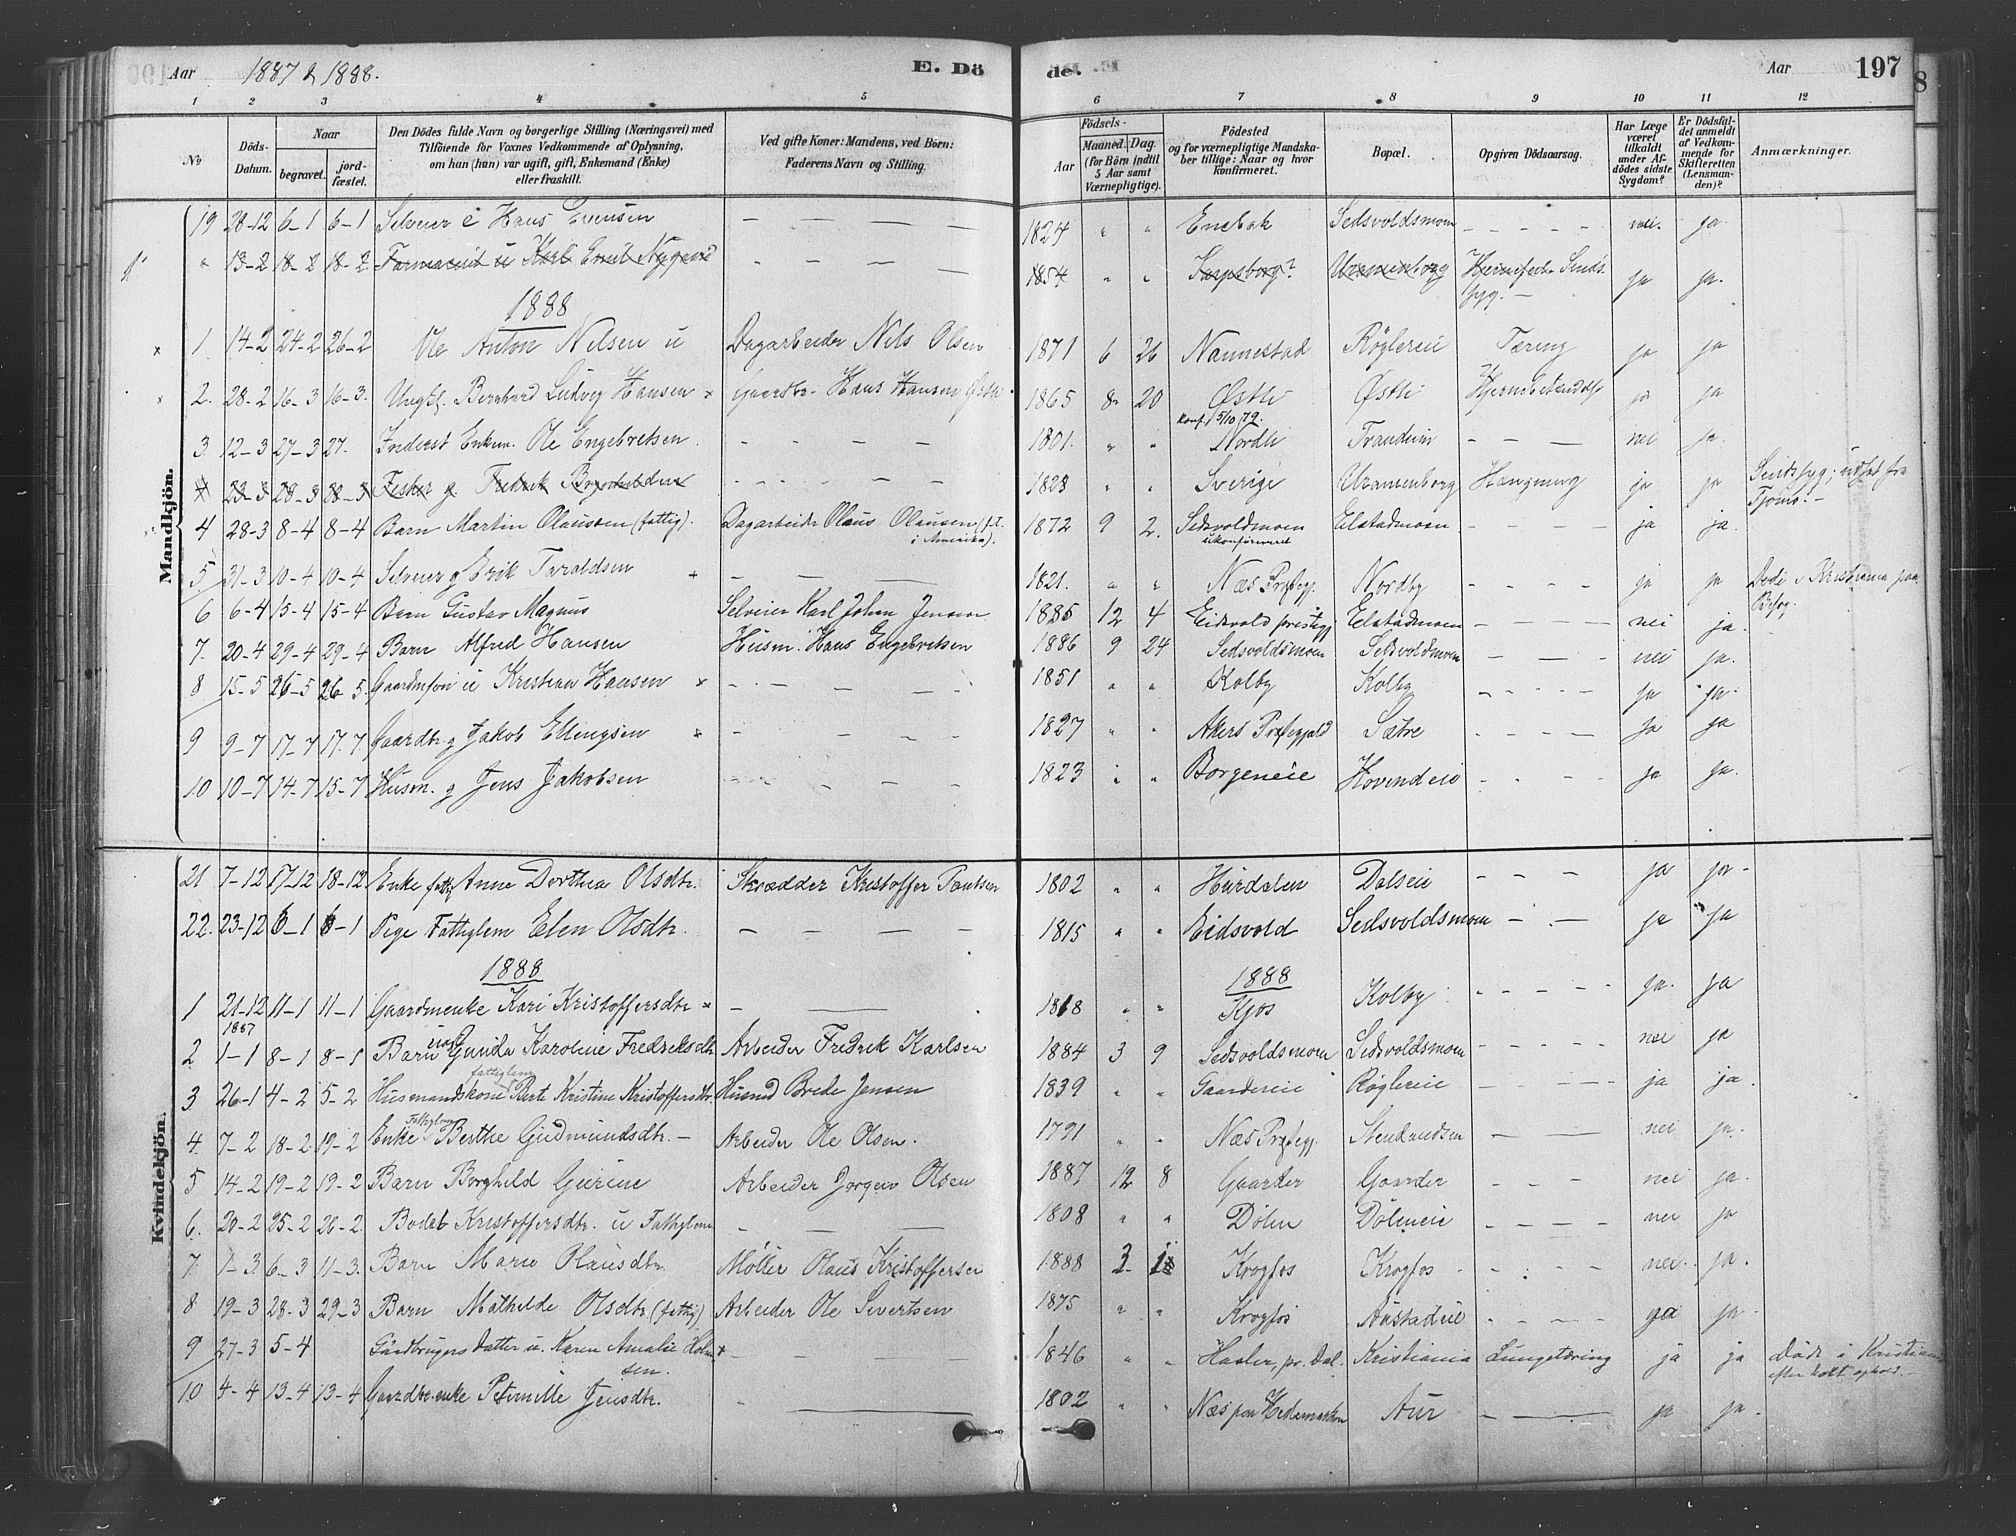 Aar 1887 & 1888. E. Dö de. Aar 197
1 2 3 4 5 6 7 8 9 10 11 12
No
Döds-Datum.
Naar
begravet.
jordfæstet.
Den Dödes fulde Navn og borgerlige Stilling (Næringsvei) med
Tilföiende for Voxnes Vedkommende af Oplysning,
om han (hun) var ugift, gift, Enkemand (Enke)
eller fraskilt.
Ved gifte Koner: Mandens, ved Börn:
Faderens Navn og Stilling.
Födsels-
Aar
Maaned. Dag.
(for Börn indtil 5 Aar samt Værnepligtige).
Födested
og for værnepligtige Mandskaber tillige: Naar og hvor konfirmeret.
Bopæl.
Opgiven Dödsaarsag.
Har Læge været tilkaldt under Afdödes sidste Sygdom?
Er Dödsfaldet anmeldt af Vedkommende for Skifteretten (Lensmanden)?
Anmærkninger.
Mandkjön.
19 28-12 6-1 6-1 Selveier e Hans Evensen — 1824 " " Enebak Sedsvoldsmoen — nei. ja
" 13-2 18-2 18-2 Farmaceut u Karl Emil Nygaard — 1854 " " Sarpsborg? Uranienborg Sindssyg. — ja ja.
1888
1. 14-2 24-2 26-2 Ole Anton Nilsen u Dagarbeider Nils Olsen 1871 6 26 Nannestad Røglereie Tæring ja ja
2. 28-2 16-3 16-3. Ungk. Bernhard Ludvig Hansen x Gaardbr. Hans Hansen Østli 1865 8 20 Østli Østli Hjernebetændelse ja ja
Konf. 5/10 79.
3 12-3 27-3 27. Inderst Enkem. Ole Engebretsen — 1801. " " Nordli Trandum — nei ja.
4 23-3 28-3 28-3 Fisker g. Fredrik — 1823 " " Sverige Uranienborg Hængning ja ja Sindssyg; udsat fra
Tjømø. —
4 28-3 8-4 8-4 Barn Martin Olaussen (fattig). Dagarbeider Olaus Olausen (f.t. 1872 9 2. Sedsvoldmoen Elstadmoen — ja ja.
i Amerika).
ukonfirmeret
5 31-3 10-4 10-4 Selveier g Erik Taraldsen x — 1821. " " Næs Præstegj. Nordby — ja ja Døde i Kristiania paa
Besøg.
6 6-4 15-4 15-4 Barn Gustav Magnus Selveier Karl Johan Jensen 1885 12 4 Eidsvold præstegj Elstadmoen — nei ja.
7. 20-4 29-4 29-4 Barn Alfred Hansen Husm. Hans Engebretsen 1886 9 24 Sedsvoldsmoen Sedsvoldmoen — nei ja.
8 15-5 26-5 26-5. Gaardmsøn u Kristian Hansen x — 1851 " " Kolby Kolby — ja ja.
9 9-7 17-7 17-7 Gaardbr. g Jakob Ellingsen x — 1827 " " Akers Præstegjæld Sætre — ja ja
10 10-7 14-7 15-7 Husm. g Jens Jakobsen — 1823 " " Borgeneie Hovindeie — ja ja.
Kvindekjön.
21 7-12 17-12 18-12 Enke fattig Anne Dorthea Olsdtr. Skrædder Kristoffer Paulsen 1802 " " Hurdalen Dalseie — ja ja-
22. 23-12 6-1 6-1 Pige Fattiglem Elen Olsdtr. — 1815 " " Eidsvold Sedsvoldsmoen — ja ja
1888 1888
1 21-12 11-1 11-1 Gaardmenke Kari Kristoffersdtr x — 1818 " " Kjos Kolby — ja. ja
1887
2. 1-1 8-1 8-1 Barn Gunda Karoline Fredriksdtr Arbeider Fredrik Karlsen 1884 3 9 Sedsvoldsmoen Sedsvoldsmoen — nei ja
uægte
3 26-1 4-2 5-2 Husmandskone Berte Kristine Kristoffersdtr. Husmd Brede Jensen 1839 " " Gaardereie Røglereie — ja ja.
fattiglem
4. 7-2 18-2. 19-2 Enke Berthe Gudmundsdtr. — Arbeider Ole Olsen. 1791 " " Næs Præstegj. — nei ja.
Fattiglem
5 14-2 19-2 19-2 Barn Borghild Gurine Arbeider Jørgen Olsen 1887 12 8 Gaarder Gaarder — nei ja.
6. 20-2 25-2 26-2. Bodel Kristoffersdtr. u Fattiglem — 1808 " " Dølen Døleneie — nei ja
7. 1-3. 6-3 11-3. Barn Marie Olausdtr. Møller Olaus Kristoffersen 1888 3 1 Krogfos Krogfos — nei. ja.
8 19-3 28-3 29-3 Barn Mathilde Olsdtr. (fattig) Arbeider Ole Sivertsen 1875 " " Krogfos Austadeie — ja ja-
9 27-3 5-4 Gårdbrugers datter u. Karen Amalie Holm x — 1846 " " Hasler, pr. Dal. Kristiania Lungetæring ja ja Død i Kristiania
sen. efter kort ophold. —
10 4-4 13-4 13-4 Gaardbr.enke Pernille Jensdtr. — 1802 " " Næs paa Hedemarken Aur — ja ja.